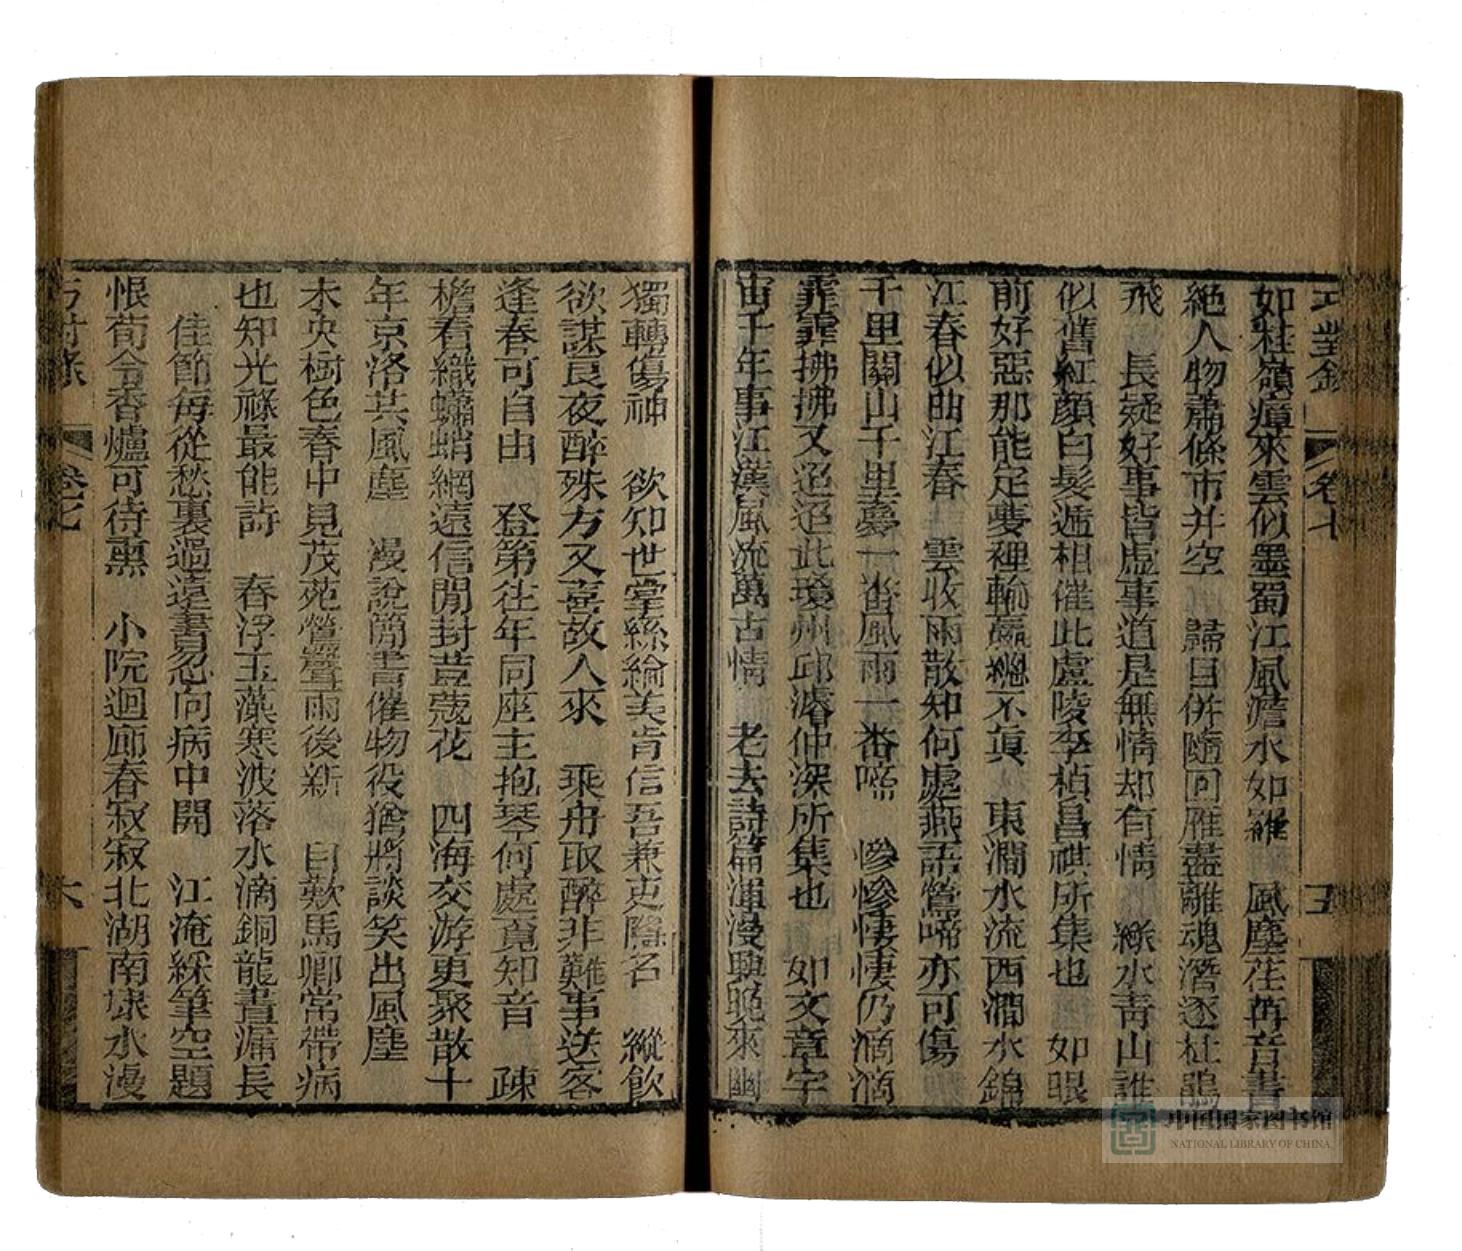 巧對錄 卷七 五
如桂嶺瘴來雲似墨蜀江風澹水如羅　風塵荏苒音書
絕人物蕭條市井空　歸目併隨回雁盡離魂潛逐杜鵑
飛　長疑好事皆虛事道是無情却有情　綠水青山誰
似舊紅顏白髮遞相催此盧陵李楨昌祺所集也　如眼
前好惡那能定夢裡輸贏總不眞　東澗水流西澗水錦
江春似曲江春　雲收雨散知何處燕語鶯啼亦可傷
千里關山千里夢一番風雨一番啼　慘慘悽悽仍滴滴
霏霏拂拂又迢迢此瓊州邱濬仲深所集也　如文章宇
宙千年事江漢風流萬古情　老去詩篇渾漫興晚來幽
獨轉傷神　欲知世掌絲綸美肯信吾兼吏隱名　縱飲
欲謀良夜醉殊方又喜故人來　乘舟取醉非難事送客
逢春可自由　登第往年同座主抱琴何處覓知音　疎
檐看織蠨蛸網遠信閒封荳蔻花　四海交游更聚散十
年京洛共風塵　漫說簡書催物役猶將談笑出風塵
未央樹色春中見茂苑鶯聲雨後新　自歎馬卿常帶病
也知光祿最能詩　春浮玉藻寒波落水滴銅龍晝漏長
佳節每從愁裏過遠書忍向病中開　江淹綵筆空題
恨荀令香爐可待熏　小院迴廊春寂寂北湖南埭水漫
巧對錄 卷七 六
中国国家图书馆
NATIONAL LIBRARY OF CHINA